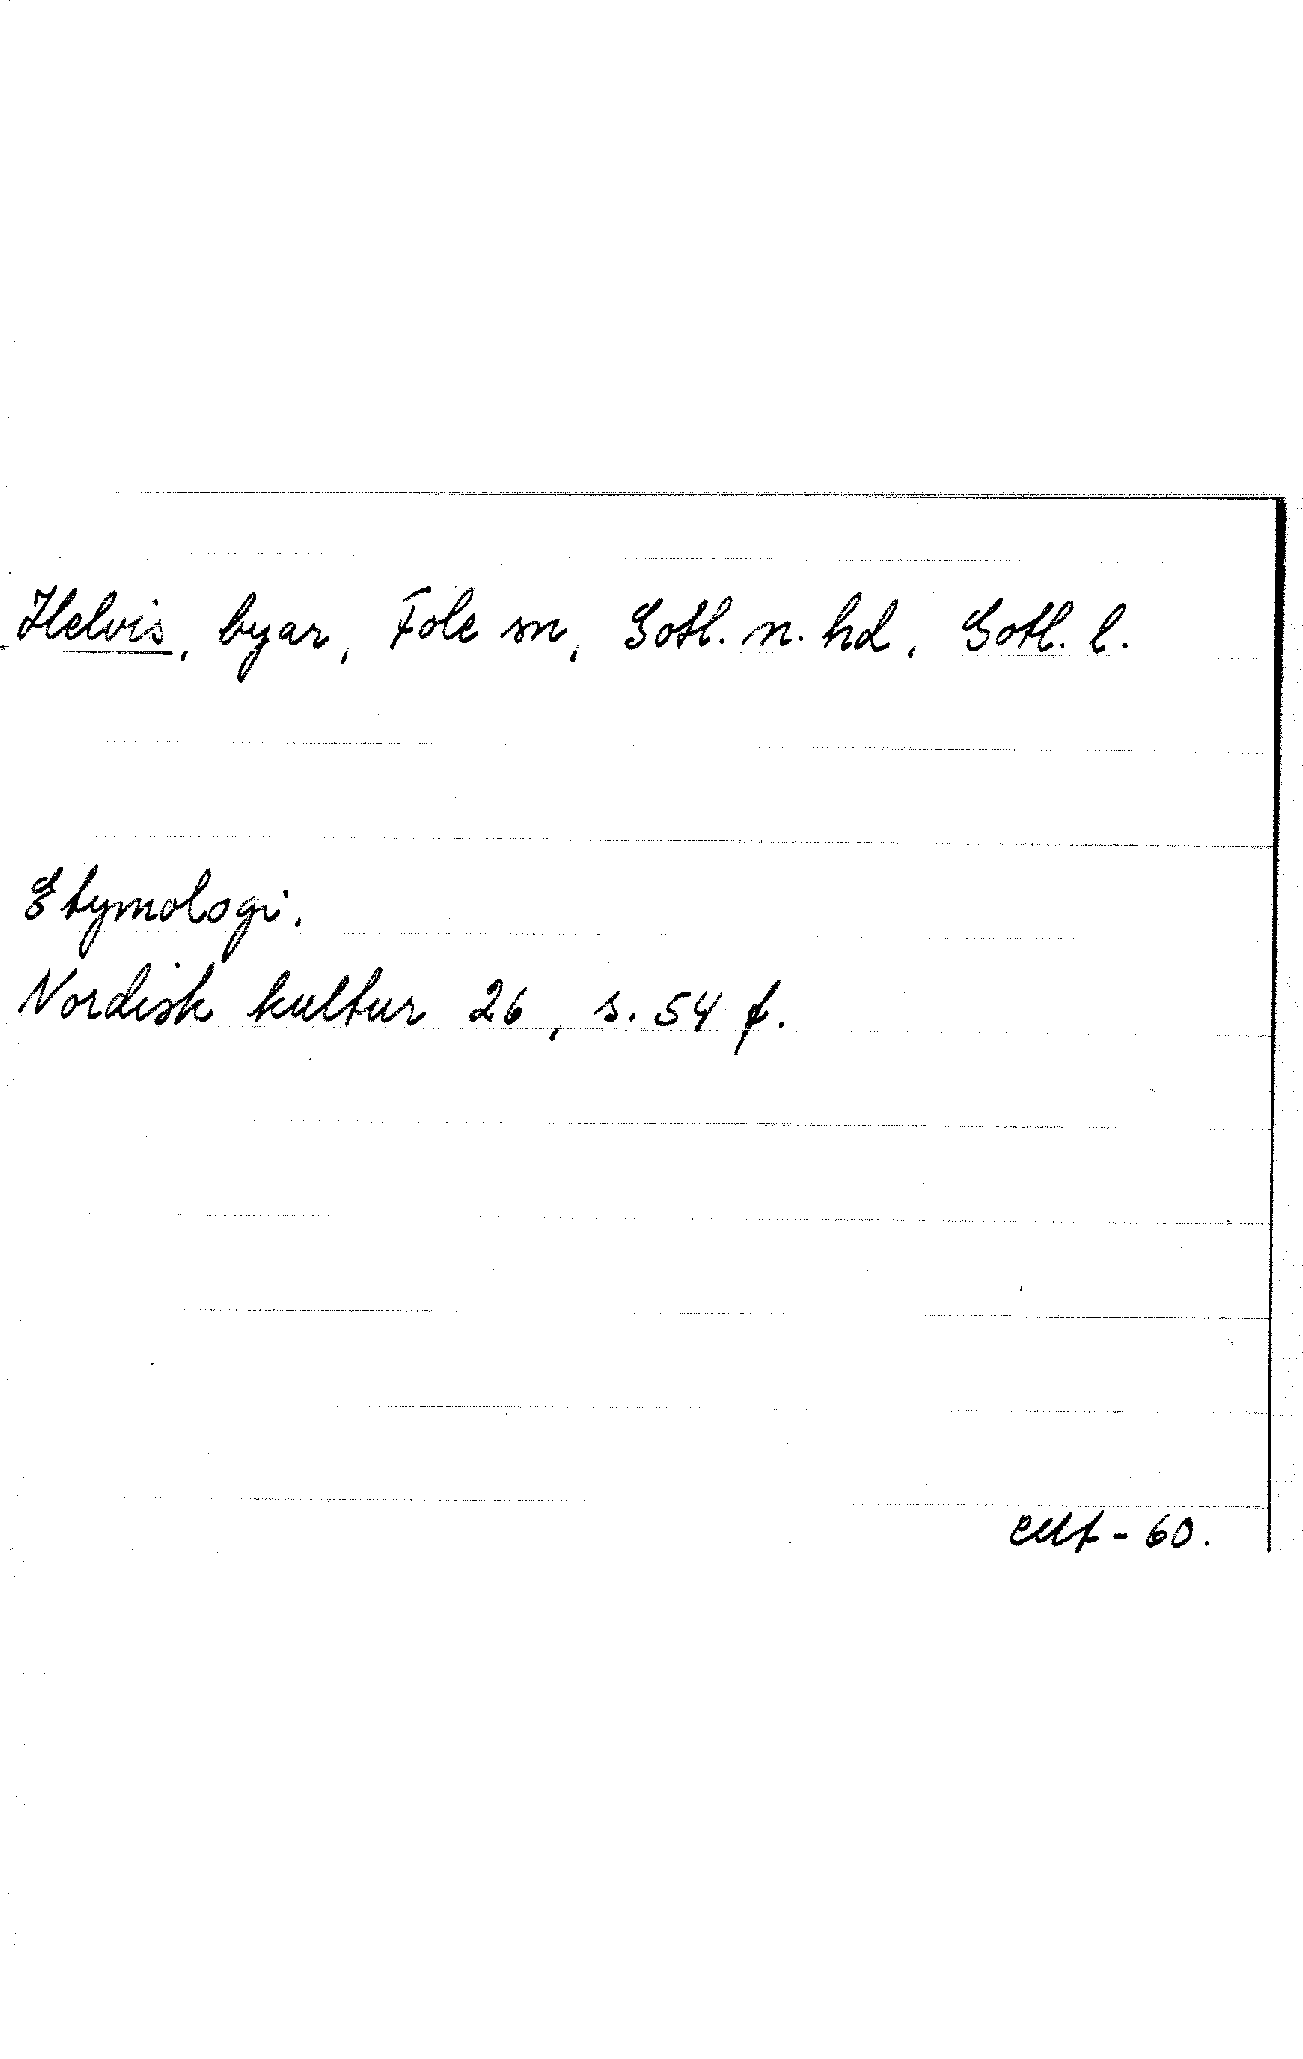 Helvis, byar, Fole sn, Gotl. n. hd, Gotl. l.
Etymologi.
Nordisk kultur 26, s. 54 f.
- 60.